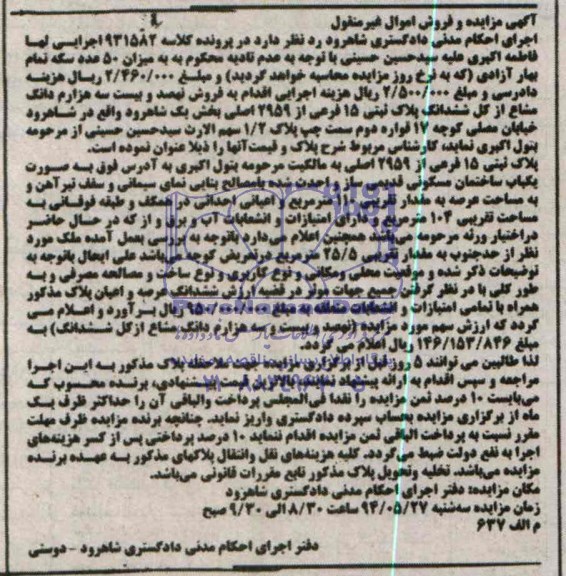 آگهی مزایده و فروش اموال غیرمنقول
اجرای احکام مدنی دادگستری شاهرود رد نظر دارد در پرونده کلاسه ۹۳۱۵۸۲ اجرایی لها
فاطمه اکبری علیه سیدحسین حسینی با توجه به عدم تادیه محکوم به به میزان ۵۰ عدد سکه تمام
بهار آزادی (که به نرخ روز مزایده محاسبه خواهد گردید) و مبلغ ۲/۴۶۰/۰۰۰ ریال هزینه
دادرسی و مبلغ ۲/۵۰۰/۰۰۰ ریال هزینه اجرایی اقدام به فروش نهصد و بیست سه هزارم دانگ
مشاع از کل ششدانگ پلاک ثبتی ۱۵ فرعی از ۲۹۵۹ اصلی بخش یک شاهرود واقع در شاهرود
خیابان مصلی کوچه ۱۷ فواره دوم سمت چپ پلاک ۱/۲ سهم الارث سیدحسین حسینی از مرحومه
بتول اکبری نماید، کارشناس مربوط شرح پلاک و قیمت‌آنها را ذیلا عنوان نموده است.
پلاک ثبتی ۱۵ فرعی از ۲۹۵۹ اصلی به مالکیت مرحومه بتول اکبری به آدرس فوق به صورت
یکباب ساختمان مسکونی قدیمی ساز و احدث شده بامصالح بنایی نمای سیمانی و سقف تیرآهن و
به مساحت عرصه به مقدار تقریبی مترمربع و اعیانی احداثی در همکف و طبقه فوقانی به
مساحت تقریبی ۱۰۴ مترمربع و دارای امتیازات و انشعابات آب و برق و از که در حال حاضر
دراختیار ورثه مرحومه می‌باشد همچنین اعلام می‌دارد باتوجه به بررسی بعمل آمده ملک مورد
نظر از حدجنوب به مقدار تقریبی ۲۵/۵ مترمربع درتعریض کوچه می‌باشد علی ایحال باتوجه به
توضیحات ذکر شده و موقعیت محلی ومکانی و نوع کاربری و نوع ساخت و مصالحه مصرفی و به
طور کلی با در نظر گرفتن جمیع جهات موثر در قضیه ارزش ششدانگ عرصه و اعیان پلاک مذکور
همراه با تمامی امتیازات و انشعابات متعلقه به مبلغ ریال برآورد و اعلام می
گردد که ارزش سهم مورد مزایده (نهصد و بیست و سه هزارم دانگ مشاع از کل ششدانگ) به
مبلغ ۱۴۶/۱۵۳/۸۴۶ ریال اعلام می گردد.
لذا طالبین می توانند ۵ روز قبل از برگزاری مزایده جهت ملاحظه پلاک مذکور به این اجرا
مراجعه و سپس اقدام به ارائه پیشنهاد نمایند. بالاترین قیمت پیشنهادی، برنده محسوب که
می‌بایست ۱۰ درصد ثمن مزایده را نقدا فی‌المجلس پرداخت والباقی آن را حداکثر ظرف یک
ماه از برگزاری مزایده بحساب سپرده دادگستری واریز نماید. چنانچه برنده مزایده ظرف مهلت
مقرر نسبت به پرداخت الباقی ثمن مزایده اقدام ننماید ۱۰ درصد پرداختی پس از کسر هزینه‌های
اجرا به نفع دولت ضبط می‌گردد. کلیه هزینه‌های نقل وانتقال پلاکهای مذکور به عهده برنده
مزایده می‌باشد. تخلیه وتحویل پلاک مذکور تابع مقررات قانونی می‌باشد.
مکان مزایده: دفتر اجرای احکام مدنی دادگستری شاهرود
زمان مزایده سه‌شنبه ۹۴/۰۵/۲۷ ساعت ۸/۳۰ الی ۹/۳۰ صبح
م الف ۶۳۷
دفتر اجرای احکام مدنی دادگستری شاهرود - دوستی